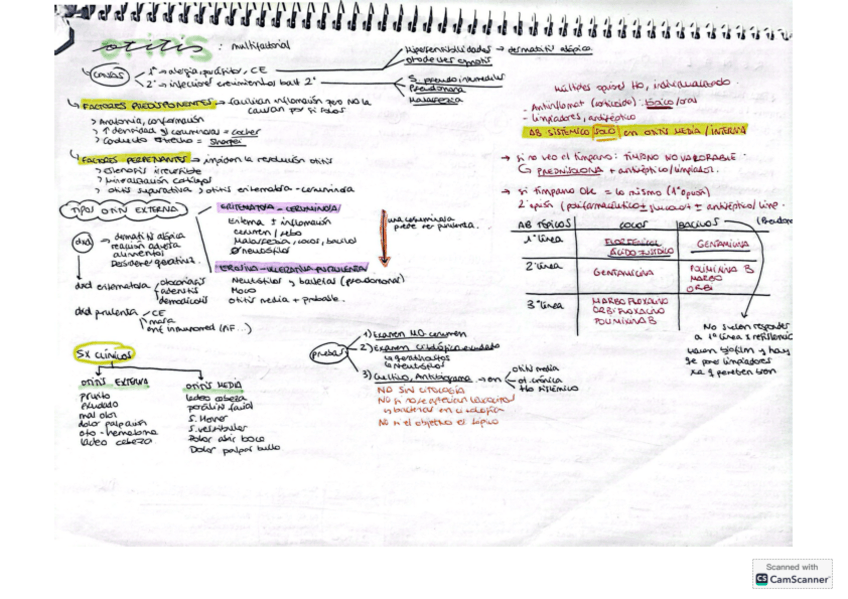 otitis : multifactorial
CAUSAS
1º → alergia, parásitos, CE
Hipersensibilidades → dermatitis atópica
otodectes cynotis
2º → infecciones
S. pseudointermedius
Pseudomona
Malassezia
FACTORES PREDISPONENTES → facilitan inflamación pero no la
causan por sí solos
> Anatomía, conformación
> ↑ densidad gl ceruminosas = cocker
> Conducto estrecho = Sharpei
FACTORES PERPETUANTES → impiden la resolución otitis
> Estenosis irreversible
> Mineralización cartílagos
> otitis supurativa > otitis eritematosa - ceruminosa
TIPOS OTITIS EXTERNA
ERITEMATOSA - CERUMINOSA
Eritema ± inflamación
cerumen / sebo
Malassezia / cocos, bacilos
Ø neutrófilos
EROSIVA - ULCERATIVA PURULENTA
Neutrófilos y bacterias (pseudomonas)
Moco
otitis media + probable.
una ceruminosa
puede ser purulenta.
dxd → dermatitis atópica
reacción adversa
alimentos
Desorden queratiniz.
dxd eritematosa
otocariasis
demodicosis
dxd purulenta
CE
masa
enf inmunomed (PF...)
SX CLÍNICOS
OTITIS EXTERNA
prurito
exudado
mal olor
dolor palpación
oto-hematoma
ladeo cabeza
OTITIS MEDIA
ladeo cabeza
parálisis facial
S. Horner
S. vestibular
Dolor abrir boca
Dolor palpar bulla
pruebas
1) Examen MO cerumen
2) Examen citológico exudado
↳ queratinocitos
↳ Neutrófilos
3) Cultivo, Antibiograma → en
otitis media
ot. crónica
tto sistémico
NO SIN CITOLOGÍA
NO si no se aprecian
bacterias en citología
NO si el objetivo es tópico
Múltiples opciones tto, individualizando.
- Antiinflamat (corticoide): tópico/oral
- Limpiadores, antiséptico
AB SISTÉMICO SOLO en OTITIS MEDIA / INTERNA
→ si no veo el tímpano: TÍMPANO NO VALORABLE.
↳ PREDNISOLONA + antiséptico/limpiador.
→ si tímpano OK = lo mismo (1ª opción)
2ª opción (polifarmacéutico ± glucocort ± antiséptico/limp.
AB TÓPICOS | COCOS | BACILOS
1ª línea | FLORFENICOL ÁCIDO FUSÍDICO | GENTAMICINA
2ª línea | GENTAMICINA | POLIMIXINA B MARBO ORBI
3ª línea | MARBOFLOXACINO ORBIFLOXACINO POLIMIXINA B
No suelen responder
a 1ª línea x resistencia
hacen biofilm y hay
q poner limpiadores
xa q penetren bien
Scanned with
CS CamScanner